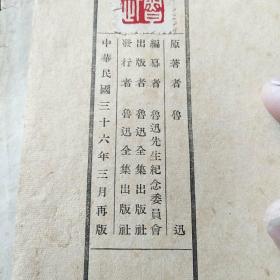 原著者　魯迅
編纂者　魯迅先生紀念委員會
出版者　魯迅全集出版社
發行者　魯迅全集出版社
中華民國三十六年三月再版